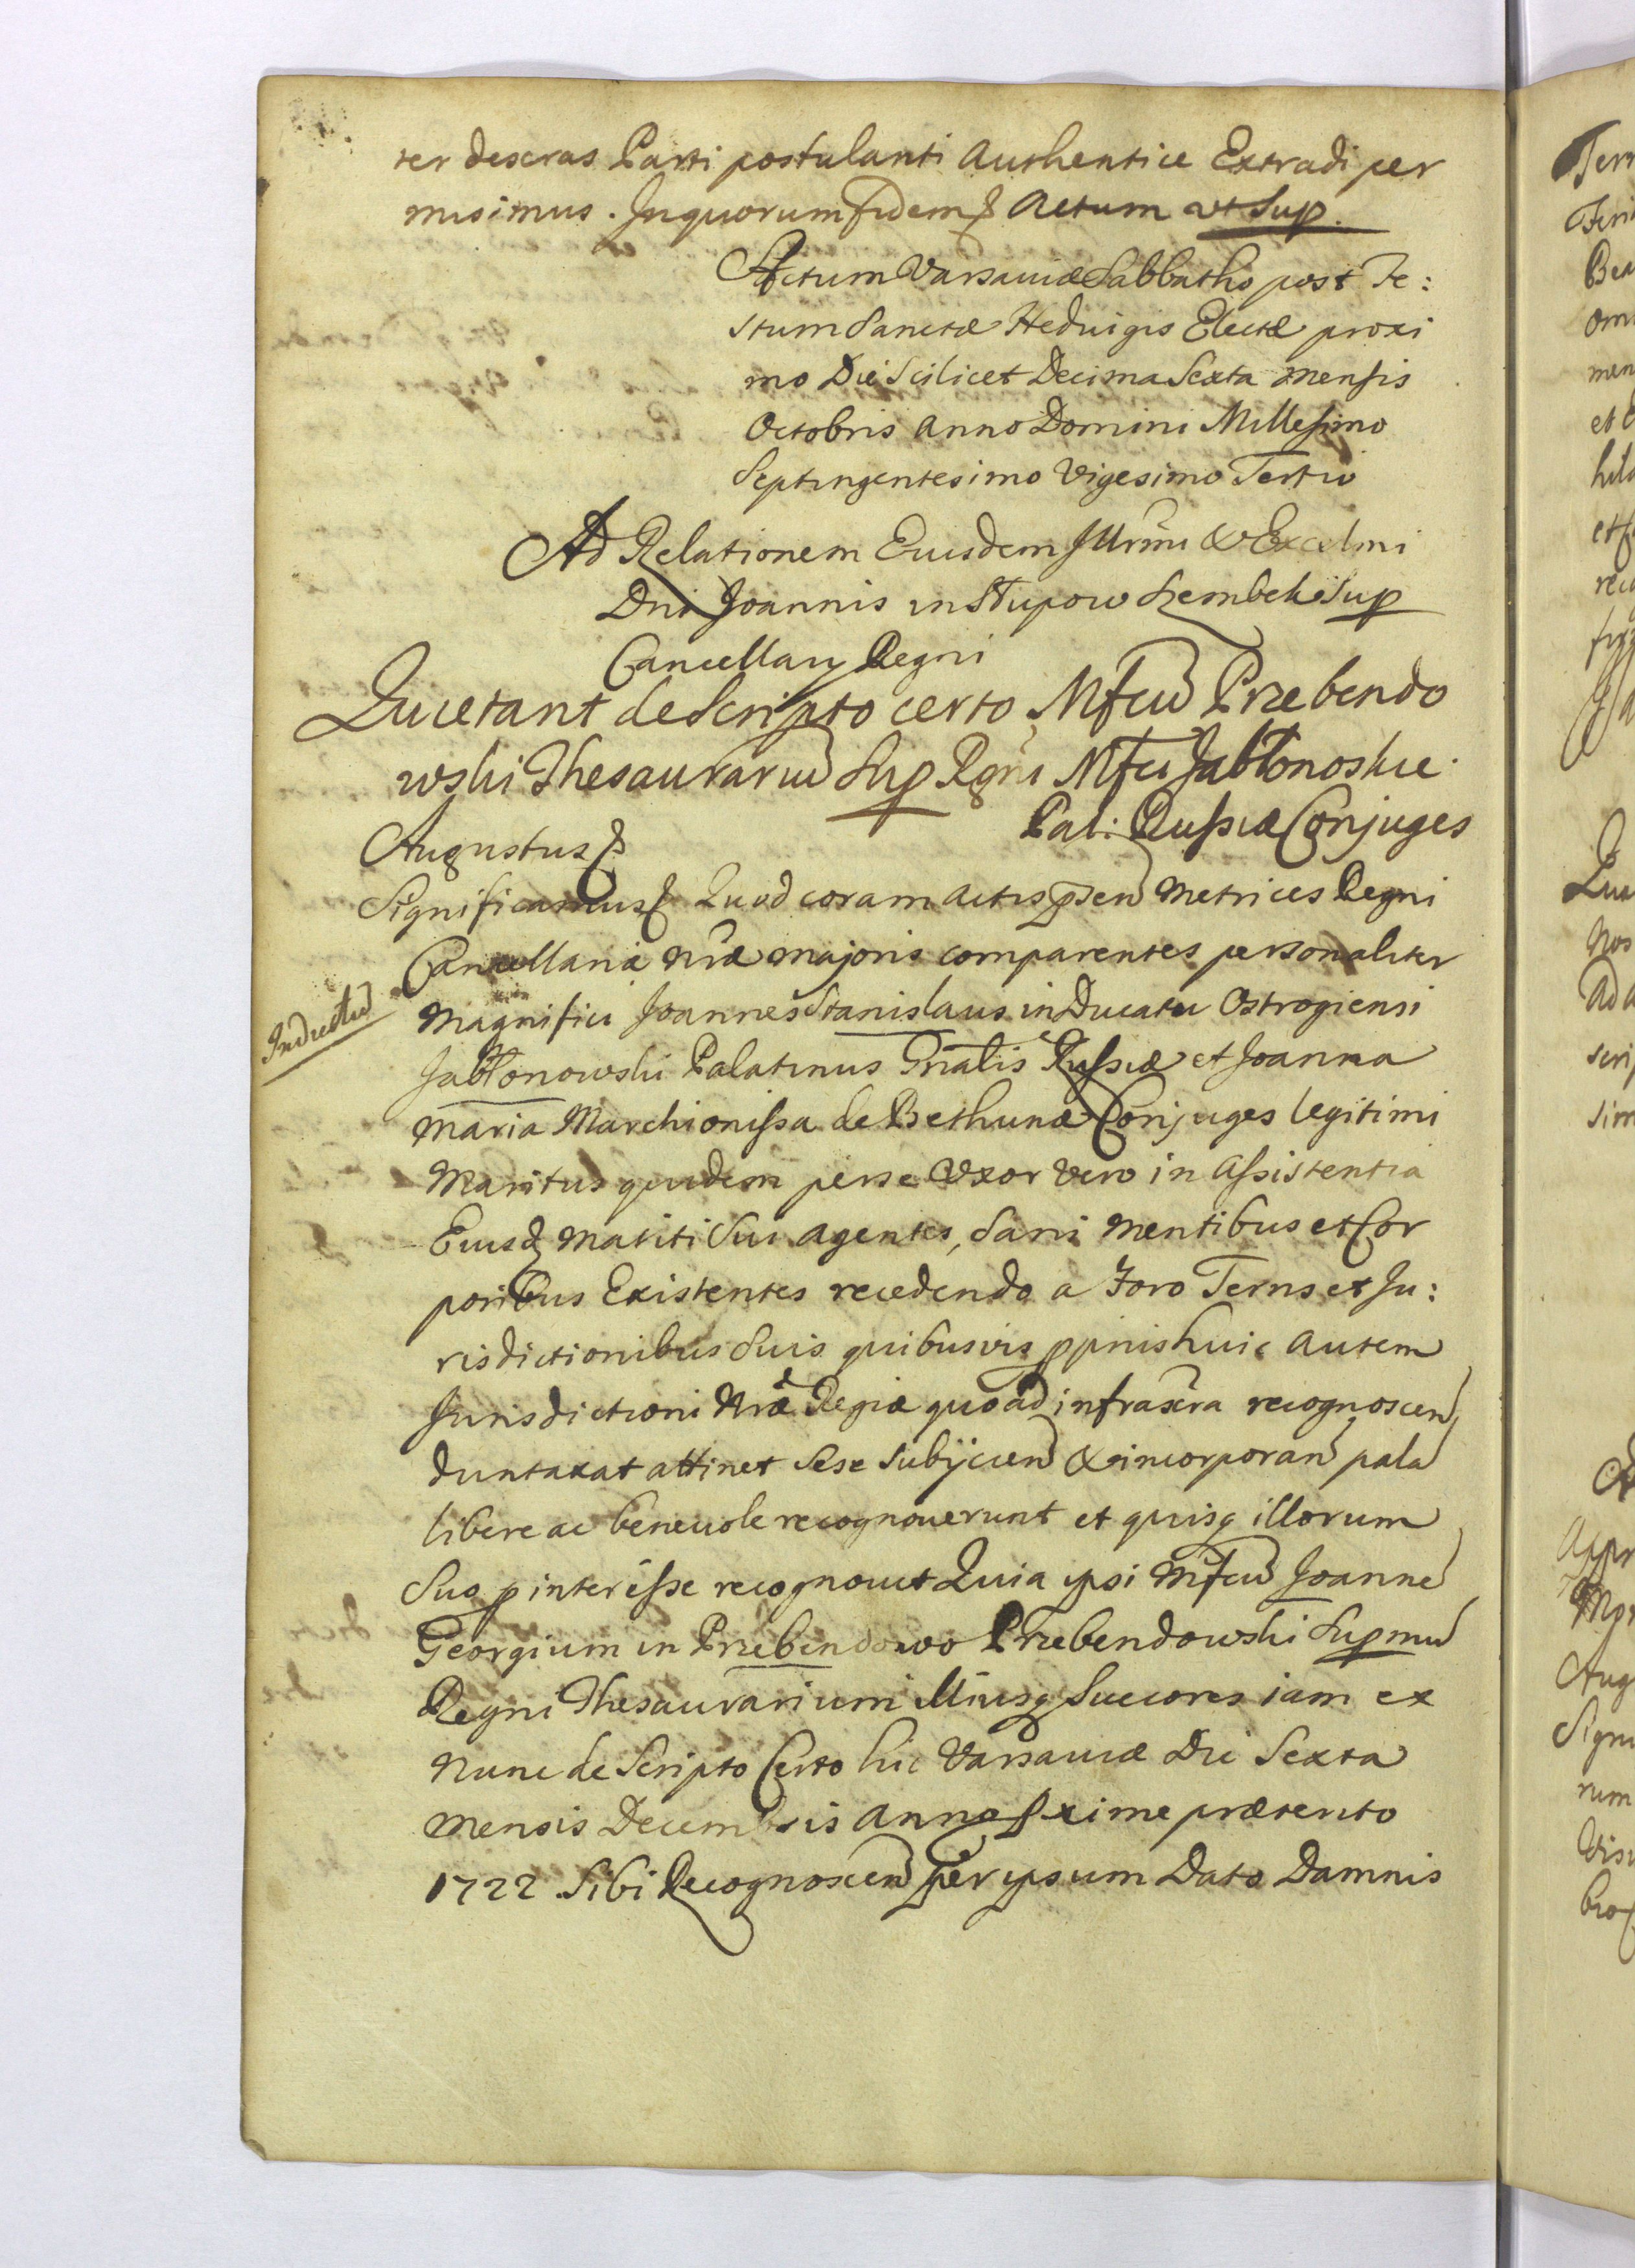 ter descras Parti postulanti Authentice Extradi per
misimus. In quorum fidem Actum ut Sup.
Actum Varsaviæ Sabbatho post Fe:
stum Sanctæ Hedvigis Electæ proxi
mo Die Scilicet Decima Sexta Mensis
Octobris Anno Domini Millesimo
Septingentesimo Vigesimo Tertio
Ad Relationem Eiusdem Illrimi & Excelmi
Dni Joannis in Słupow Szembek Sup
Cancellarij Regni
Quietant de Scripto certo Mfcu Przebendo
wski Thesaurariu Sup Rgni Mfci Jabłonoskie
Pali Russiæ Conjuges
Augustus
Significamus Quod coram Actis psen Metrices Regni
Cancellariæ Nræ Majoris comparentes personaliter
Inductu
Magnifici Joannes Stanislaus in Ducatu Ostrogiensi
Jabłonowski Palatinus Gnalis Russiæ et Joanna
Maria Marchionissa de Bethunæ Conjuges legitimi
Maritus quidem per se Uxor vero in Assistentia
Eiusd Mariti Sui agentes, Sani Mentibus et Cor
poribus Existentes recedendo a Foro Terris et Ju:
risdictionibus Suis quibusvis ppriis huic autem
Jurisdictioni Nræ Regiæ quoad infrascra recognoscen
duntaxat attinet Sese Subijcien & incorporan pala
libere ac benevole recognoverunt et quisq illorum
Suo p interesse recognovit Quia ipsi Mfcu Joanne
Georgium in Przebendowo Przebendowski Supmu
Regni Thesaurarium Illiusq Succores iam ex
Nunc de Scripto Certo hic Varsaviæ Die Sexta
Mensis Decembris Anno pxime præterito
1722 Sibi Recognoscen per ipsum Dato Damnis